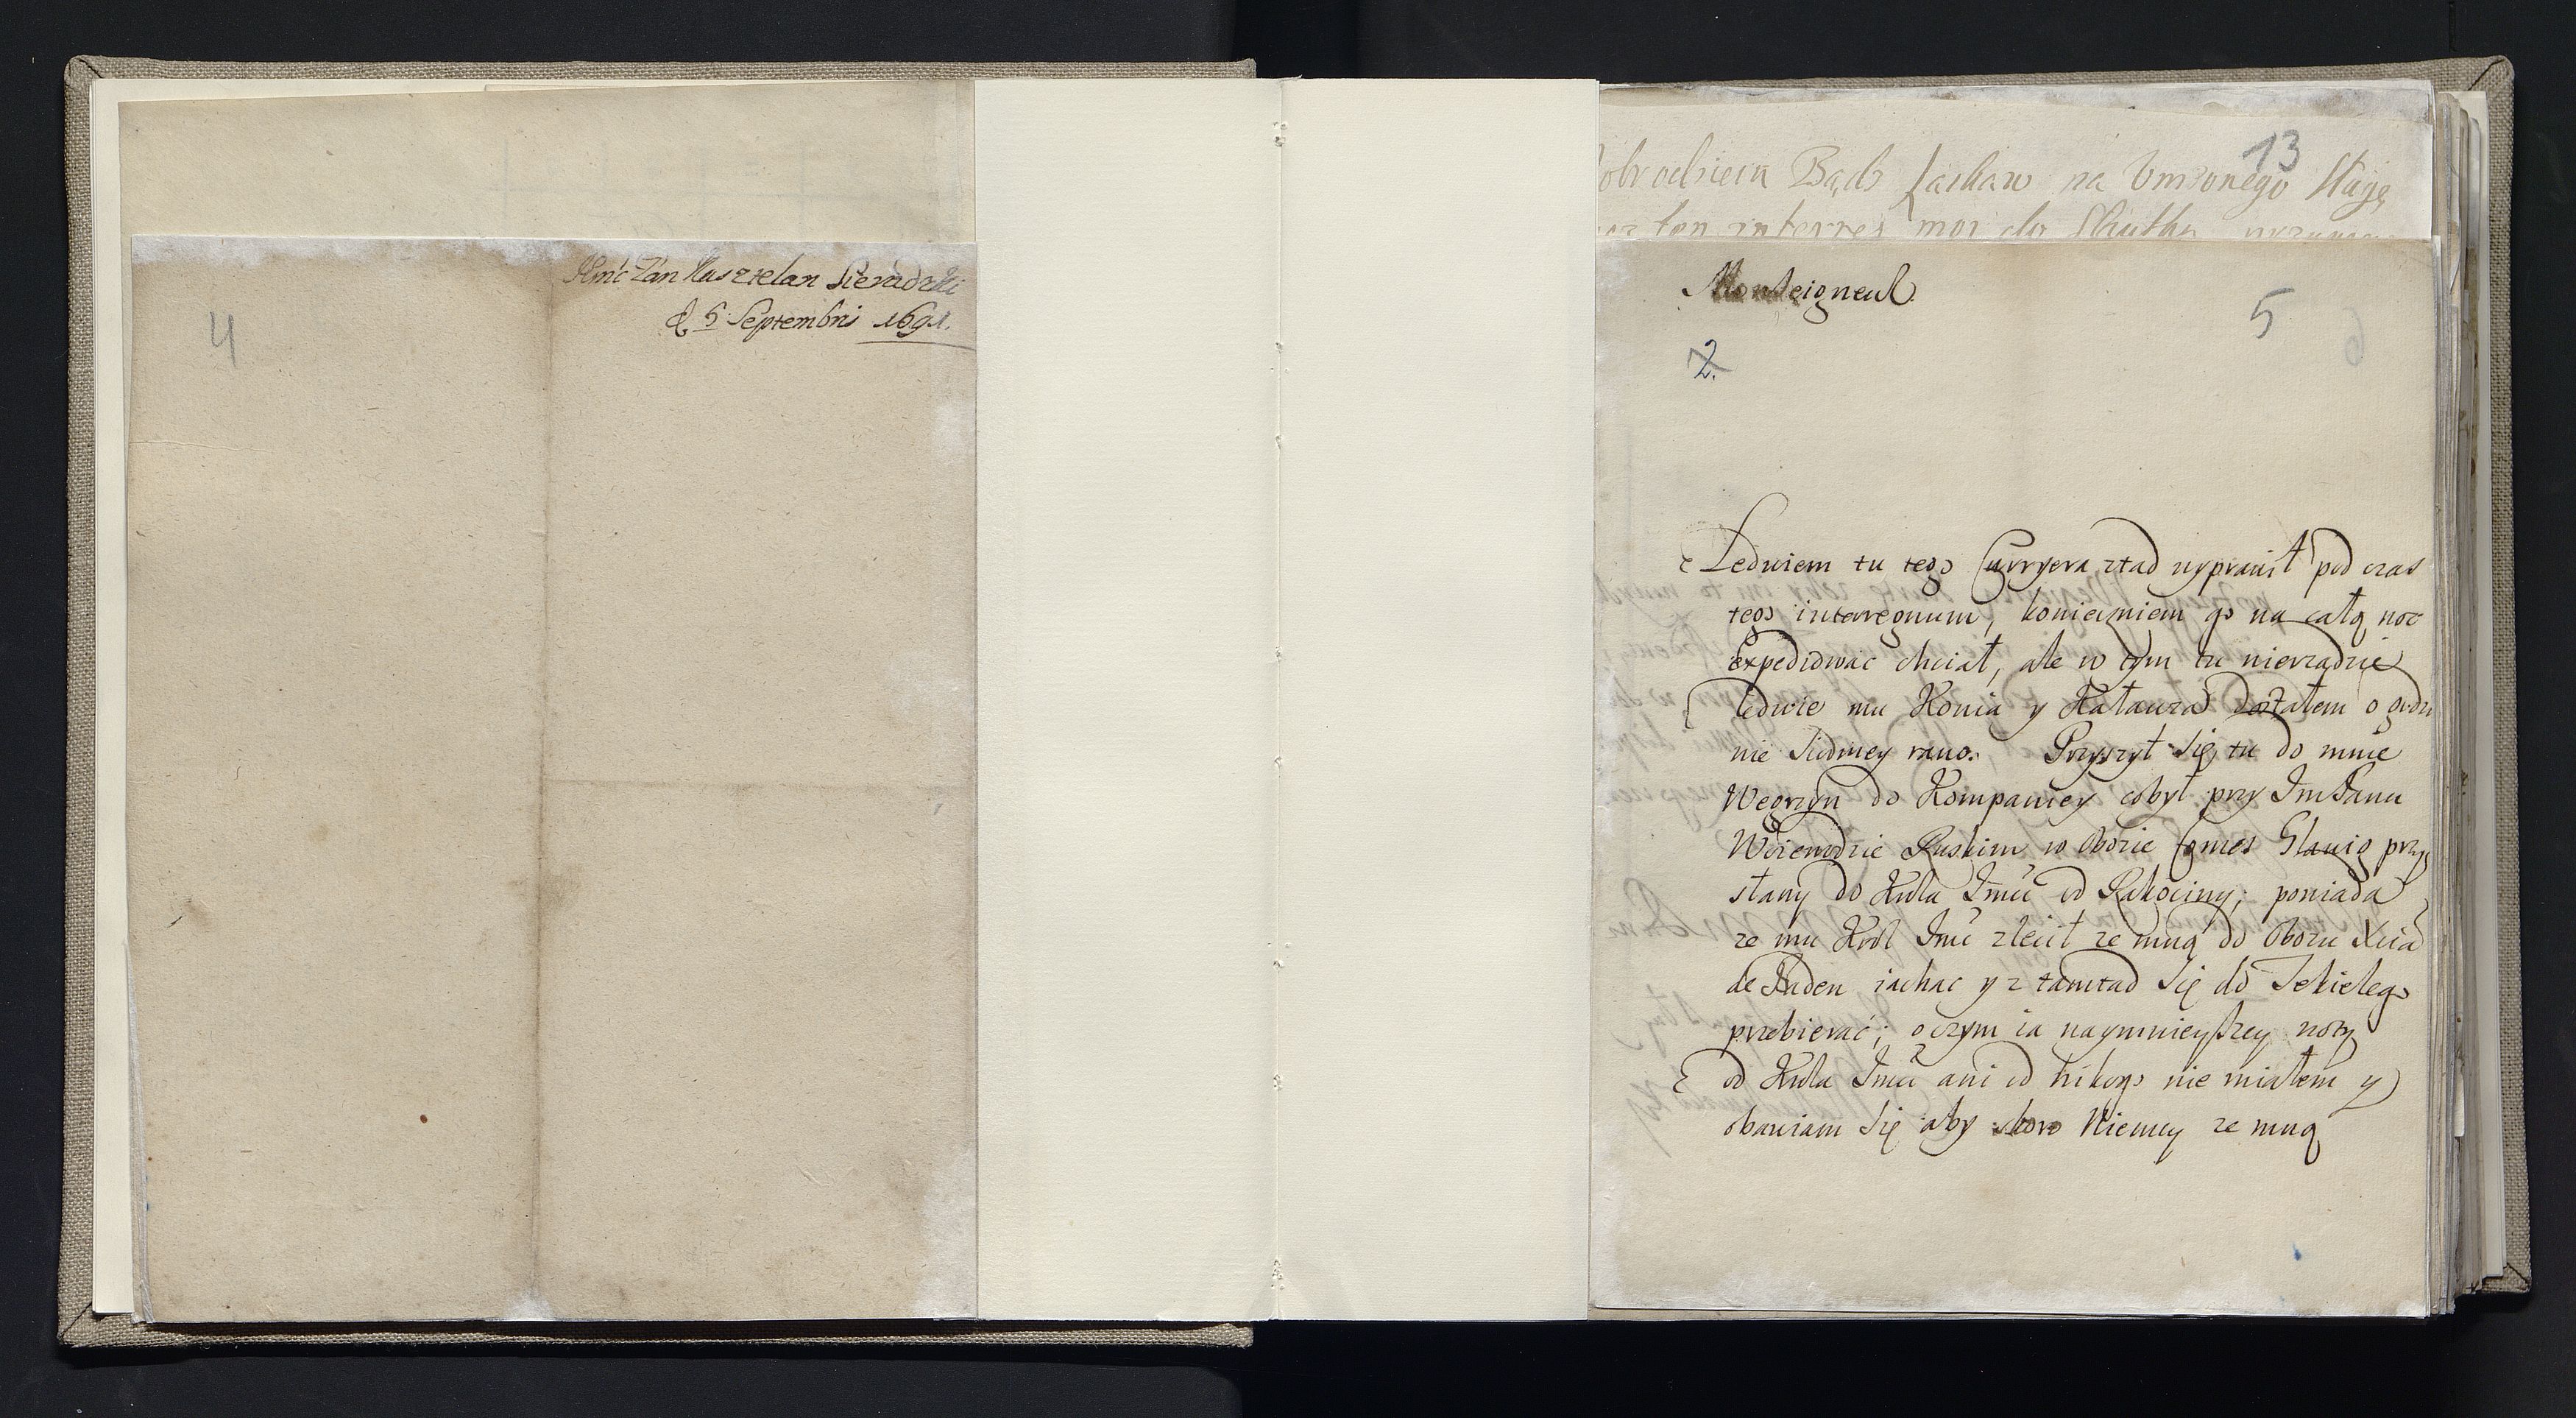 4
Jmć Pan Kasztelan Sieradzki
d. 5. Septembris 1691.
13
Bądz łaskaw na Unizonego Sługę
ten interres moi do Skutku
Monseigneur.
5
6
2.
Ledwiem tu tego Curryera ztad wyprawił pod czas
tego interregnum, koniecniem go na całą noc
expediować chciał, ale w tym tu nierządzie
ledwie mu Konia y Kałauza dostałem o godzi
nie siodmey rano. Przyszył się tu do mnie
Węgrzyn do Kompaniey cobył przy Im Panu
Woiewodzie Ruskim w Obozie Comes Glawig przy
słany do Krola Jmći od Rakociny; powiada
ze mu Krol Jmć zlecił ze mną do Obozu Xcia
de Baden iachac y z tamtad się do Tekielego
przebierać; o czym ia naymnieyszey noty
od Krola Jmći ani od nikogo nie miałem y
obawiam się aby skoro Niemcy ze mną